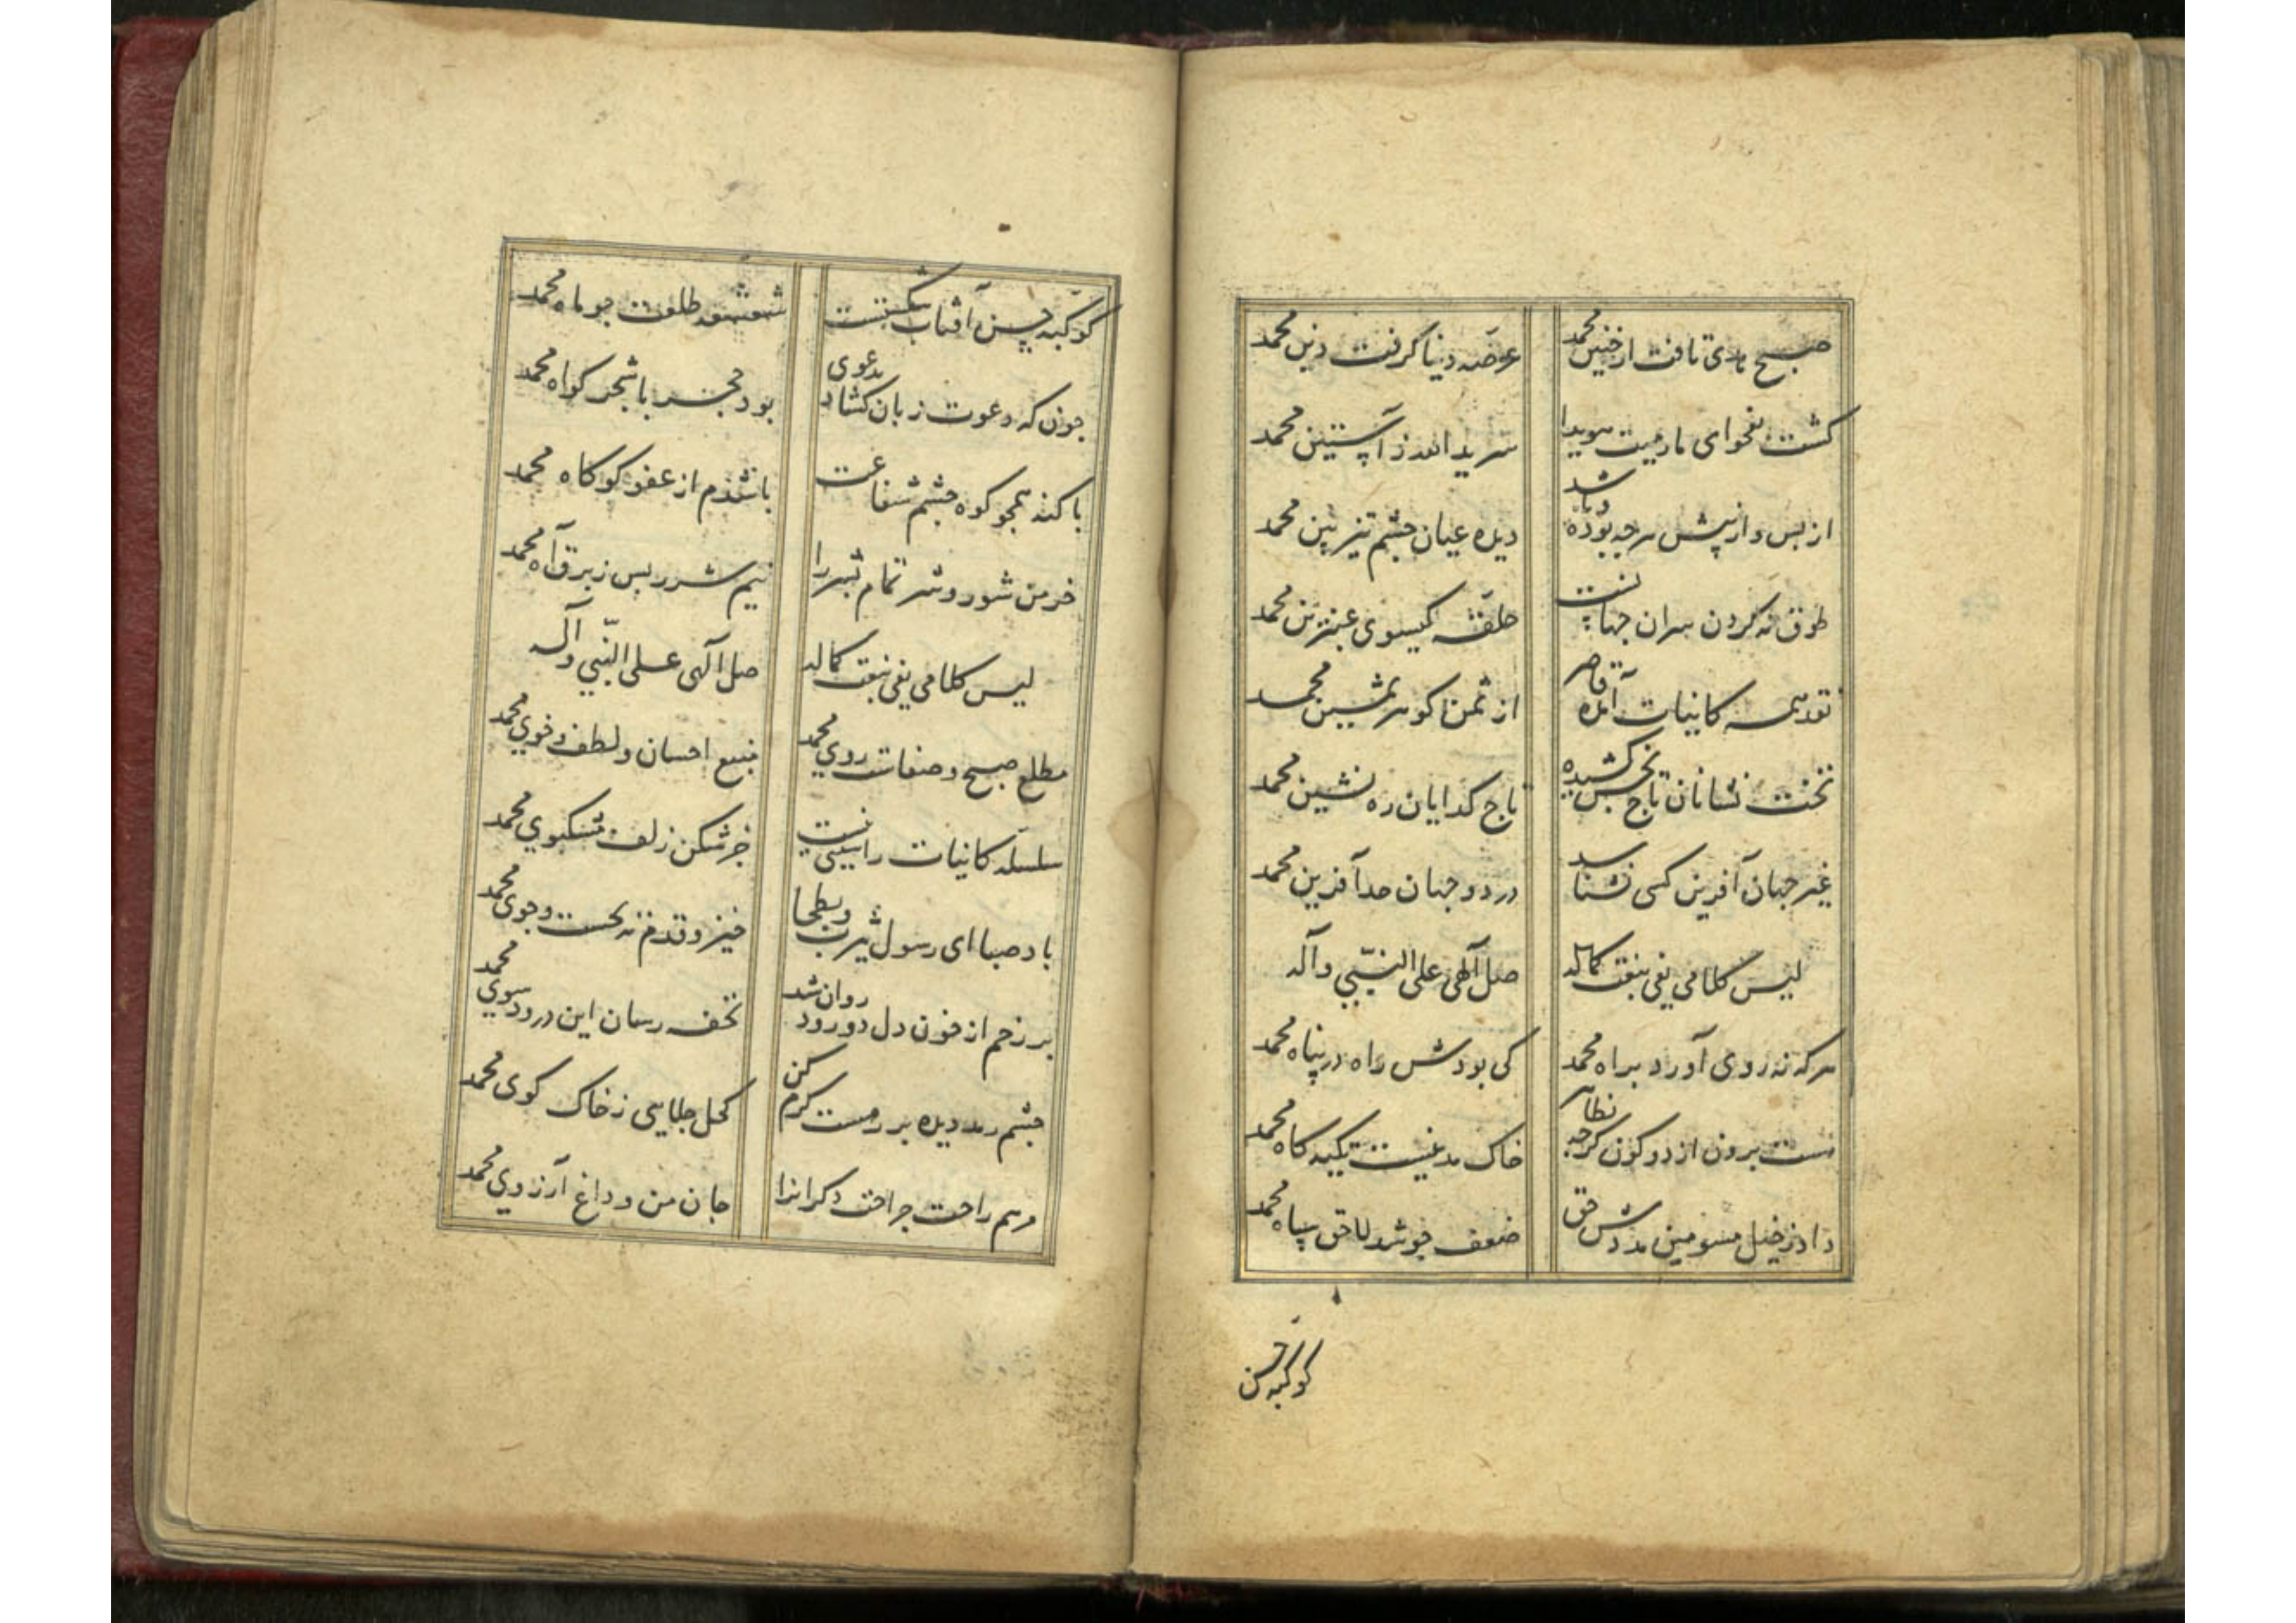 صبح هدی تافت از جبین محمد
عرصه دنیا گرفت دین محمد
گشت بفحوای مارمیت هویدا
سر ید الله ز آستین محمد
از پس و از پیش هرچه بوده و باشد
دیده عیان چشم تیزبین محمد
طوق نه گردن سران جهانست
حلقه گیسوی عنبرین محمد
نقد همه کاینات آمده قاصر
از ثمن گوهر ثمین محمد
تخت نشانان تاج بخش کشیده
تاج گدایان ره نشین محمد
غیر جهان آفرین کسی نشناسد
در دو جهان حد آفرین محمد
لیس کلامی یفی بنعت کماله
صل الهی علی النبی وآله
هرکه نه روی آورد براه محمد
کی بودش راه در پناه محمد
نیست برون از دو کون گرچه بظاهر
خاک مدینست تکیه گاه محمد
داد ز خیل مسومین مددش حق
ضعف چو شد لاحق سپاه محمد
کوکبه حسن
کوکبه حسن آفتاب شکست
شعشعه طلعت چو ماه محمد
چون که دعوت زبان گشاد بدعوی
بود حجر با شجر گواه محمد
با گنه همچو کوه چشم شفاعت
باشدم از عفو کوکاه محمد
خرمن شور و شر تمام بشر را
نیم شرر بس ز برق آه محمد
لیس کلامی یفی بنعت کماله
صل الهی علی النبی وآله
مطلع صبح و صفاست روی محمد
منبع احسان و لطف و خوی محمد
سلسله کاینات را سببی نیست
جز شکن زلف مشکبوی محمد
باد صبا ای رسول یثرب و بطحا
خیز و قدم نه بجست وجوی محمد
بر رخم از خون دل دو رود روان شد
تحفه رسان این درود سوی محمد
چشم رمد دیده بر رهست کرم کن
کحل جلایی ز خاک کوی محمد
مرهم راحت جراحت دگرانرا
جان من و داغ آرزوی محمد